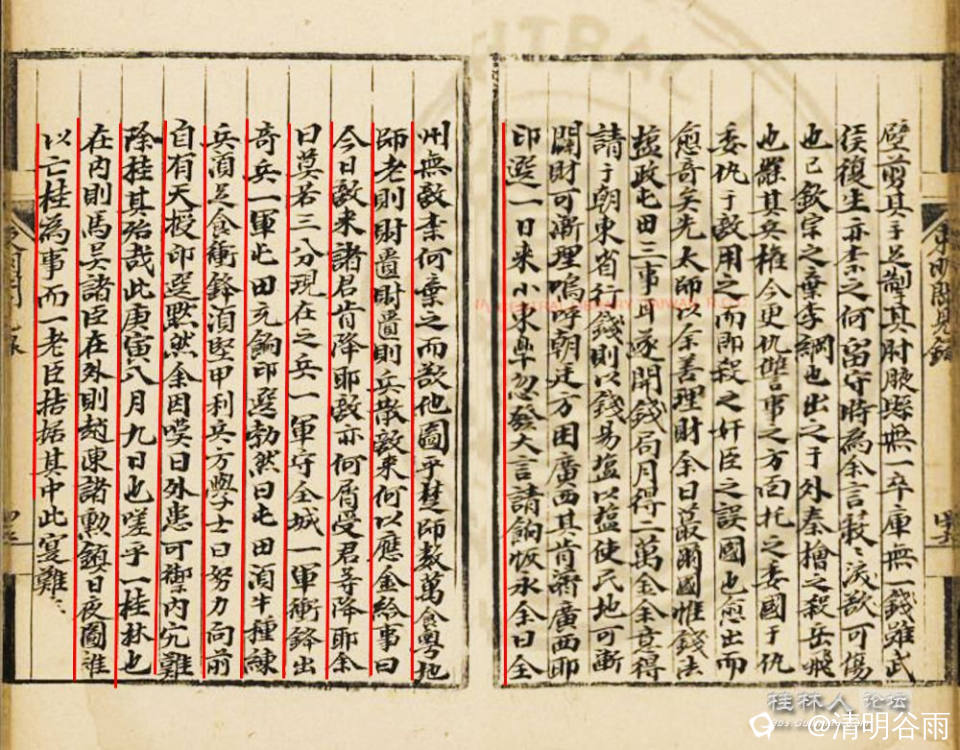 臂剪其手足制其肘腋縣無一卒庫無一錢雖武
侯復生亦末之何留守時為余言義〻淚欲可傷
也已欽宗之棄李綱也出之于外秦檜之殺岳飛
也羅其兵權今更仇讐事之方面托之委國于仇
委仇于敵用之而即殺之奸臣之誤國也愈出而
愈奇矣先太師以余善理財余曰蕞爾國惟錢法
塩政屯田三事耳遂開錢局月得二萬金余意得
請于朝東省行錢則以錢易塩以塩使民地可漸
闢財可漸理嗚呼朝廷方困廣西其肯濟廣西耶
印選一日來小東皐忽發大言請餉恢永余曰全
州無敵素何棄之而欲他圖乎楚師数萬食粤地
師老則財匱財匱則兵散敵來何以應金給事曰
今日敵来諸君肯降耶敵亦何屑受君等降耶余
曰莫若三分現在之兵一軍守全城一軍衝鋒出
奇兵一軍屯田充餉印選勃然曰屯田湏牛種練
兵湏足食衝鋒湏堅甲利兵方學士曰努力向前
自有天授印選默然余因嘆曰外患可禦内宄難
除桂其殆哉此庚寅八月九日也嗟乎一桂林也
在内則馬吳諸臣在外則趙陳諸勲鎮日夜圖維
以亡桂為事而一老臣拮据其中此寔難〻
桂林人 论坛
@清明谷雨